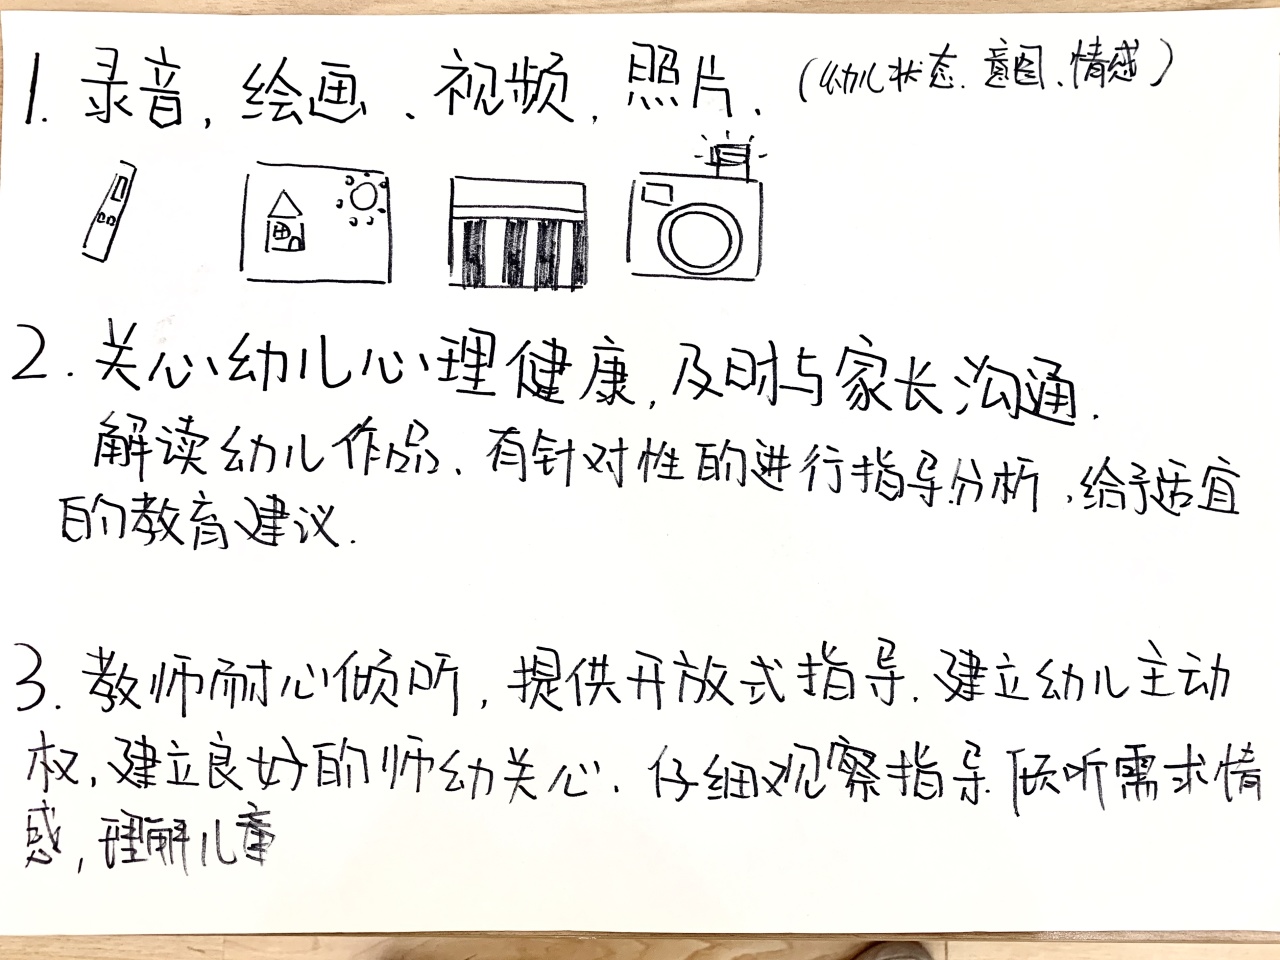 1. 录音, 绘画、视频, 照片. (幼儿状态. 意图、情感)
2. 关心幼儿心理健康, 及时与家长沟通.
解读幼儿作品、有针对性的进行指导分析, 给予适宜
的教育建议.
3. 教师耐心倾听, 提供开放式指导. 建立幼儿主动
权, 建立良好的师幼关心. 仔细观察指导 倾听需求情
感, 理解儿童